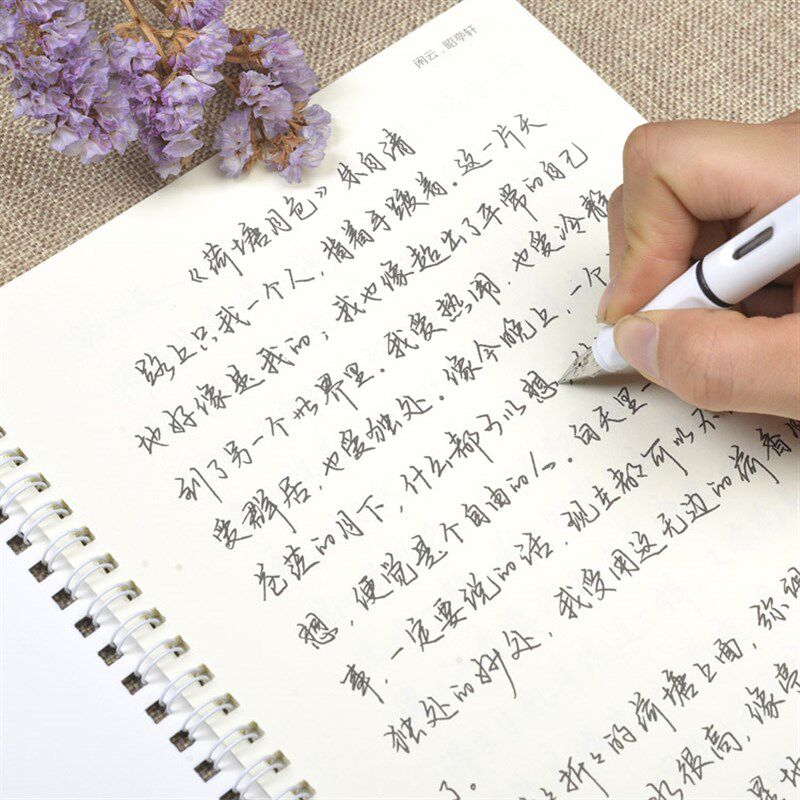 闲云.昭亭轩
《荷塘月色》朱自清
路上只我一个人，背着手踱着。这一片天
地好像是我的；我也像超出了平常的自己
到了另一个世界里。我爱热闹，也爱冷静
爱群居，也爱独处。像今晚上，一个
苍茫的月下，什么都可以想，
想，便觉是个自由的人。白天里一
事，一定要说的话，现在都可以不
独处的妙处，我受用这无边的荷香
了。
折折的荷塘上面，弥
水很高，像亭
是地